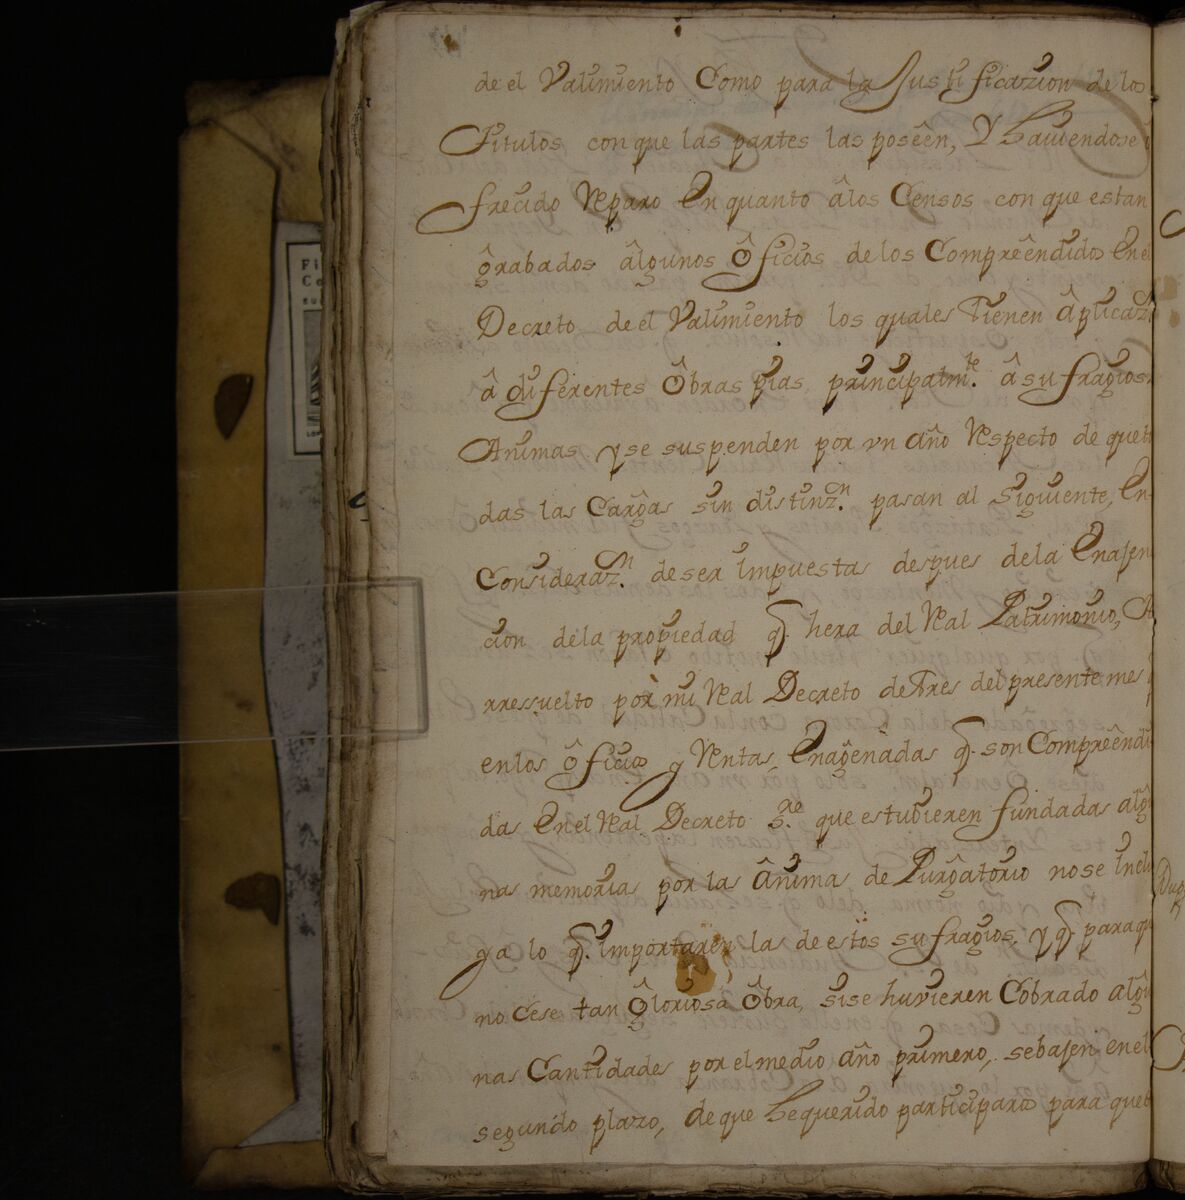 de el Valimiento Como para la Justificazion de los
Titulos con que las partes las poseên, Y haviendose
frecido Reparo En quanto âlos Censos con que estan
ĝrabados âlgunos ôficios de los Compreêndidos En el
Decreto de el Valimiento los quales Tienen âplicaz.n
â diferentes ôbras pias principalm.te â sufragios
Animas y se suspenden por vn año Respecto de que to
das las Cargas sin distinz.n pasan al siguiente, En
Consideraz.n de ser impuestas despues de la Enajen
cion de la propiedad q. hera del Real Patrimonio,
rressuelto por mi Real Decreto de Tres del presente mes
en los ôficios y Rentas Enagenadas q. son Compreêndi
das En el Real Decreto s.re que estuvieren fundadas algu
nas memorias por las ânimas de Purgatorio no se inclu
ya lo q. importaren las de estos sufragios, y q. para que
no Cese tan ĝloriosa ôbra, si se huvieren Cobrado algu
nas Cantidades por el medio año primero, se bajen en el
segundo plazo, de que he querido participaros para que